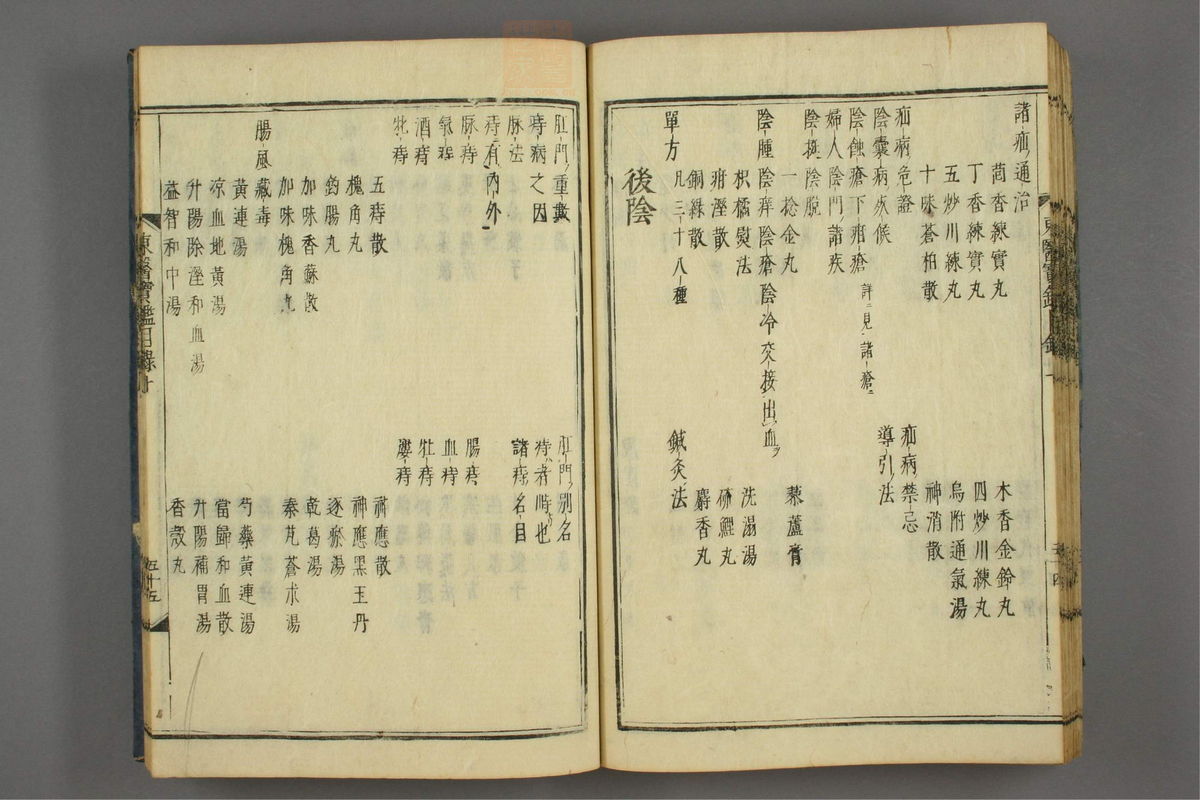 諸疝通治
茴香練實丸 木香金鈴丸
丁香練實丸 四炒川練丸
五炒川練丸 烏附通氣湯
十味蒼柏散 神消散
疝病危證 疝病禁忌
陰囊病疾候 導引法
陰蝕瘡下疳瘡 詳見諸瘡
婦人陰門諸疾
陰挺陰脫
一捻金丸 䔧蘆膏
陰腫陰痒陰瘡陰冷交接出血
枳橘熨法 洗溻湯
疳溼散 硇鯉丸
銅綠散 麝香丸
單方 凡三十八種 鍼灸法
後陰
肛門重數 肛門別名
痔病之因 痔者峙也
脉法 諸痔名目
痔有內外
脉痔 腸痔
氣痔 血痔
酒痔 牡痔
牝痔 瘻痔
五痔散 神應散
槐角丸 神應黑玉丹
釣腸丸 逐瘀湯
加味香蘇散 乾葛湯
加味槐角丸 秦艽蒼朮湯
腸風藏毒
黃連湯 芍藥黃連湯
凉血地黃湯 當歸和血散
升陽除溼和血湯 升陽補胃湯
益智和中湯 香殼丸
東醫寶鑑目錄 五十五